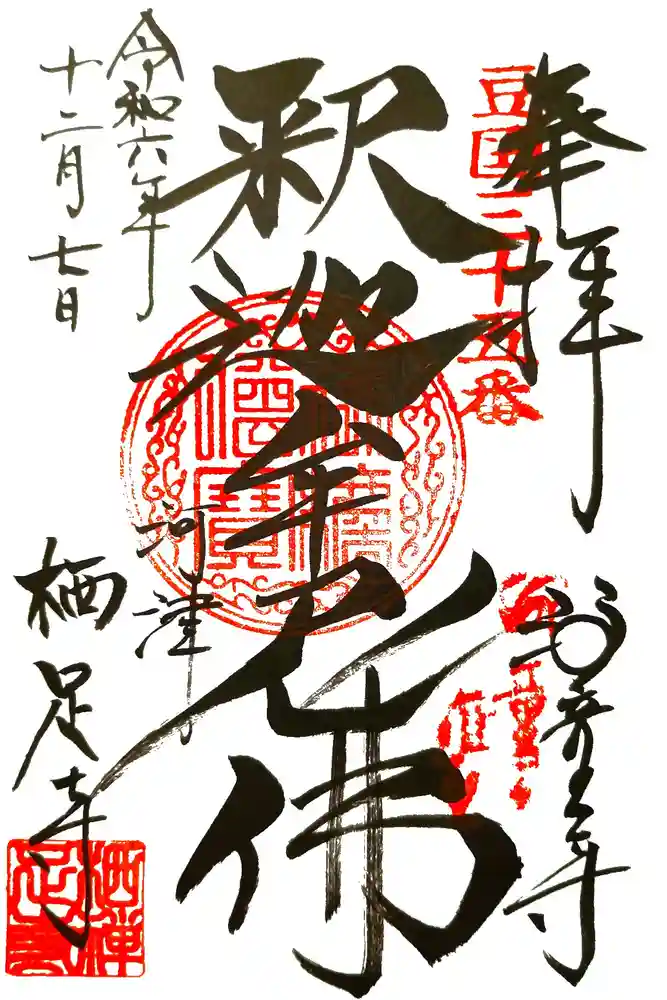 奉拝
豆国二十五番
釈迦牟尼佛
河津
栖足寺
栖禅足寺
令和六年
十二月七日